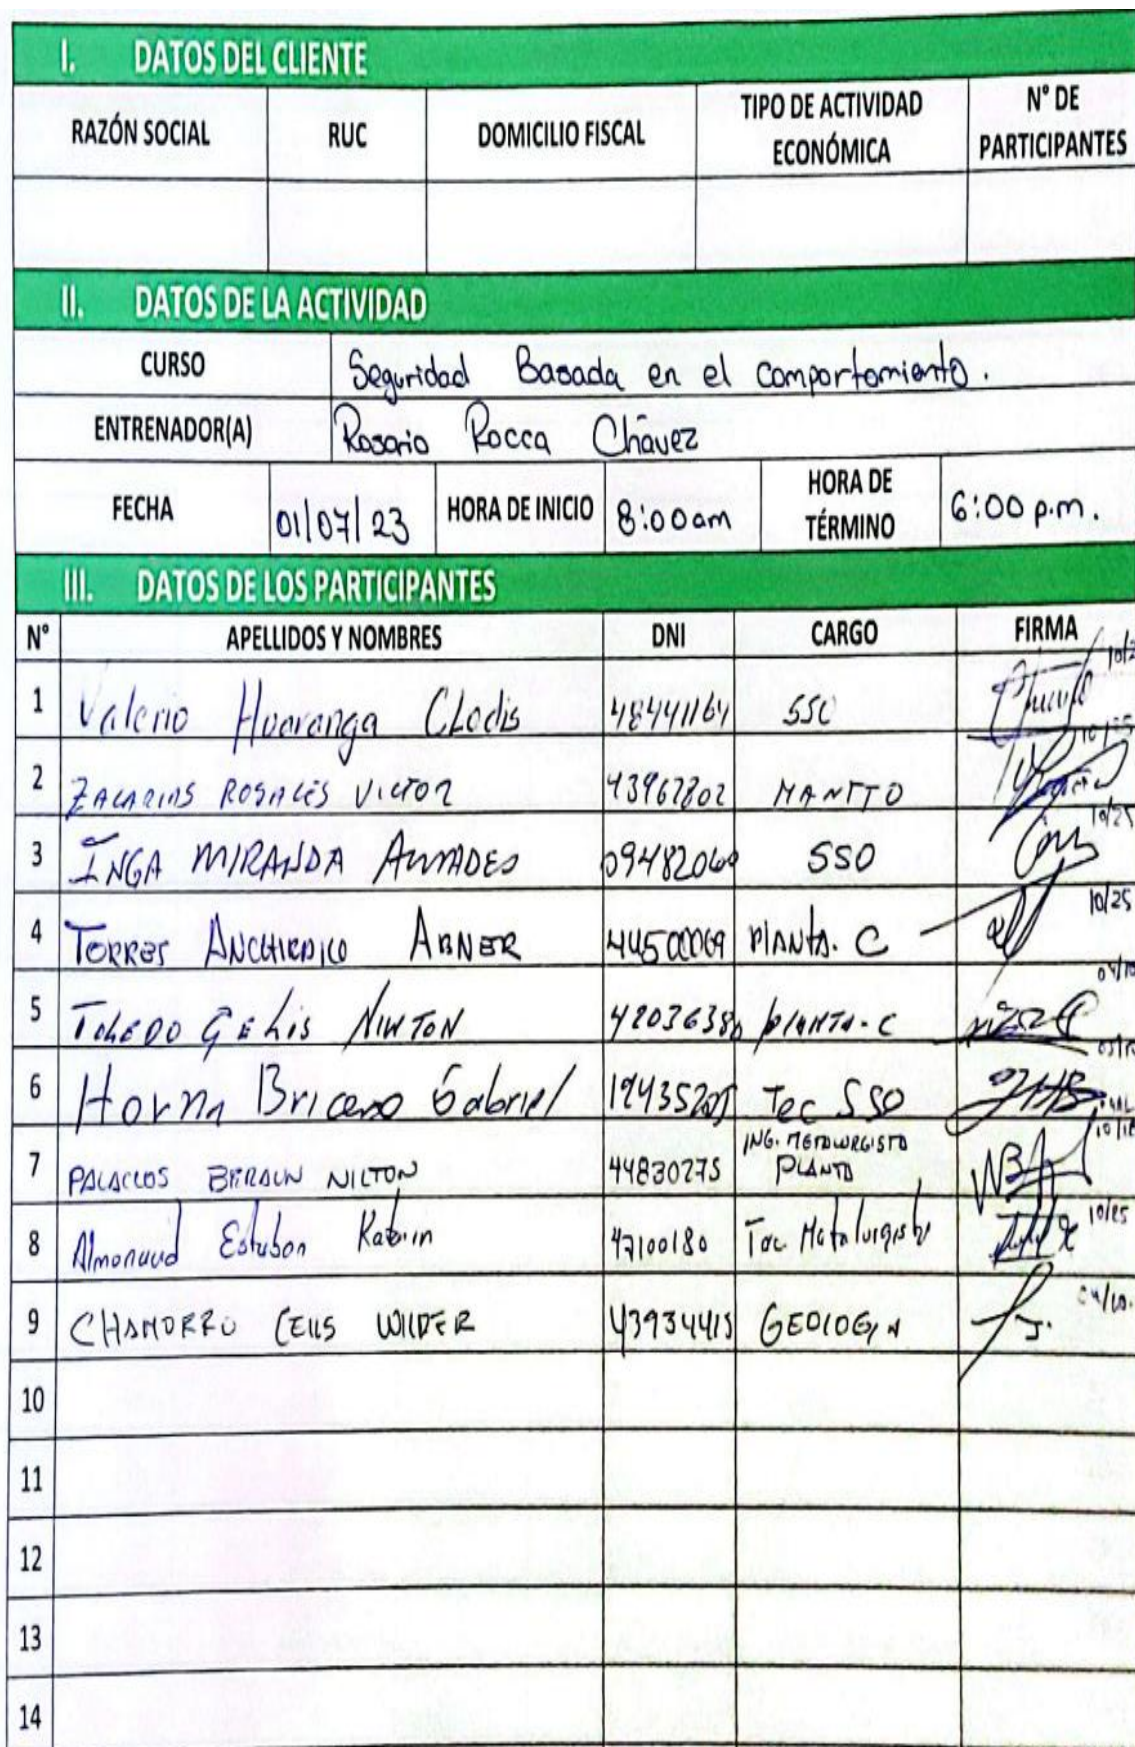 I. DATOS DEL CLIENTE
RAZÓN SOCIAL RUC DOMICILIO FISCAL TIPO DE ACTIVIDAD ECONÓMICA N° DE PARTICIPANTES
II. DATOS DE LA ACTIVIDAD
CURSO Seguridad Basada en el comportamiento.
ENTRENADOR(A) Rosario Rocca Chávez
FECHA 01/07/23 HORA DE INICIO 8:00am HORA DE TÉRMINO 6:00 p.m.
III. DATOS DE LOS PARTICIPANTES
N° APELLIDOS Y NOMBRES DNI CARGO FIRMA
1 Valerio Huaranga Clodis 48441164 SSO
2 ZACARIAS ROSALES VICTOR 43967802 MANTTO
3 INGA MIRANDA AMADES 09482060 SSO 10/25
4 TORRES ABNER 44500069 PLANTA. C 10/25
5 TOLEDO GELIS NIWTON 42036380 PLANTA-C
6 Horna Briceno Gabriel Tec SSO
7 PALACIOS BERAUN NILTON 44830275 ING. METALURGISTA PLANTA
8 Estuban 47100180 Tec Metalurgista 10/25
9 CHAMORRO CELIS WILDER 43934415 GEOLOGIA
10
11
12
13
14